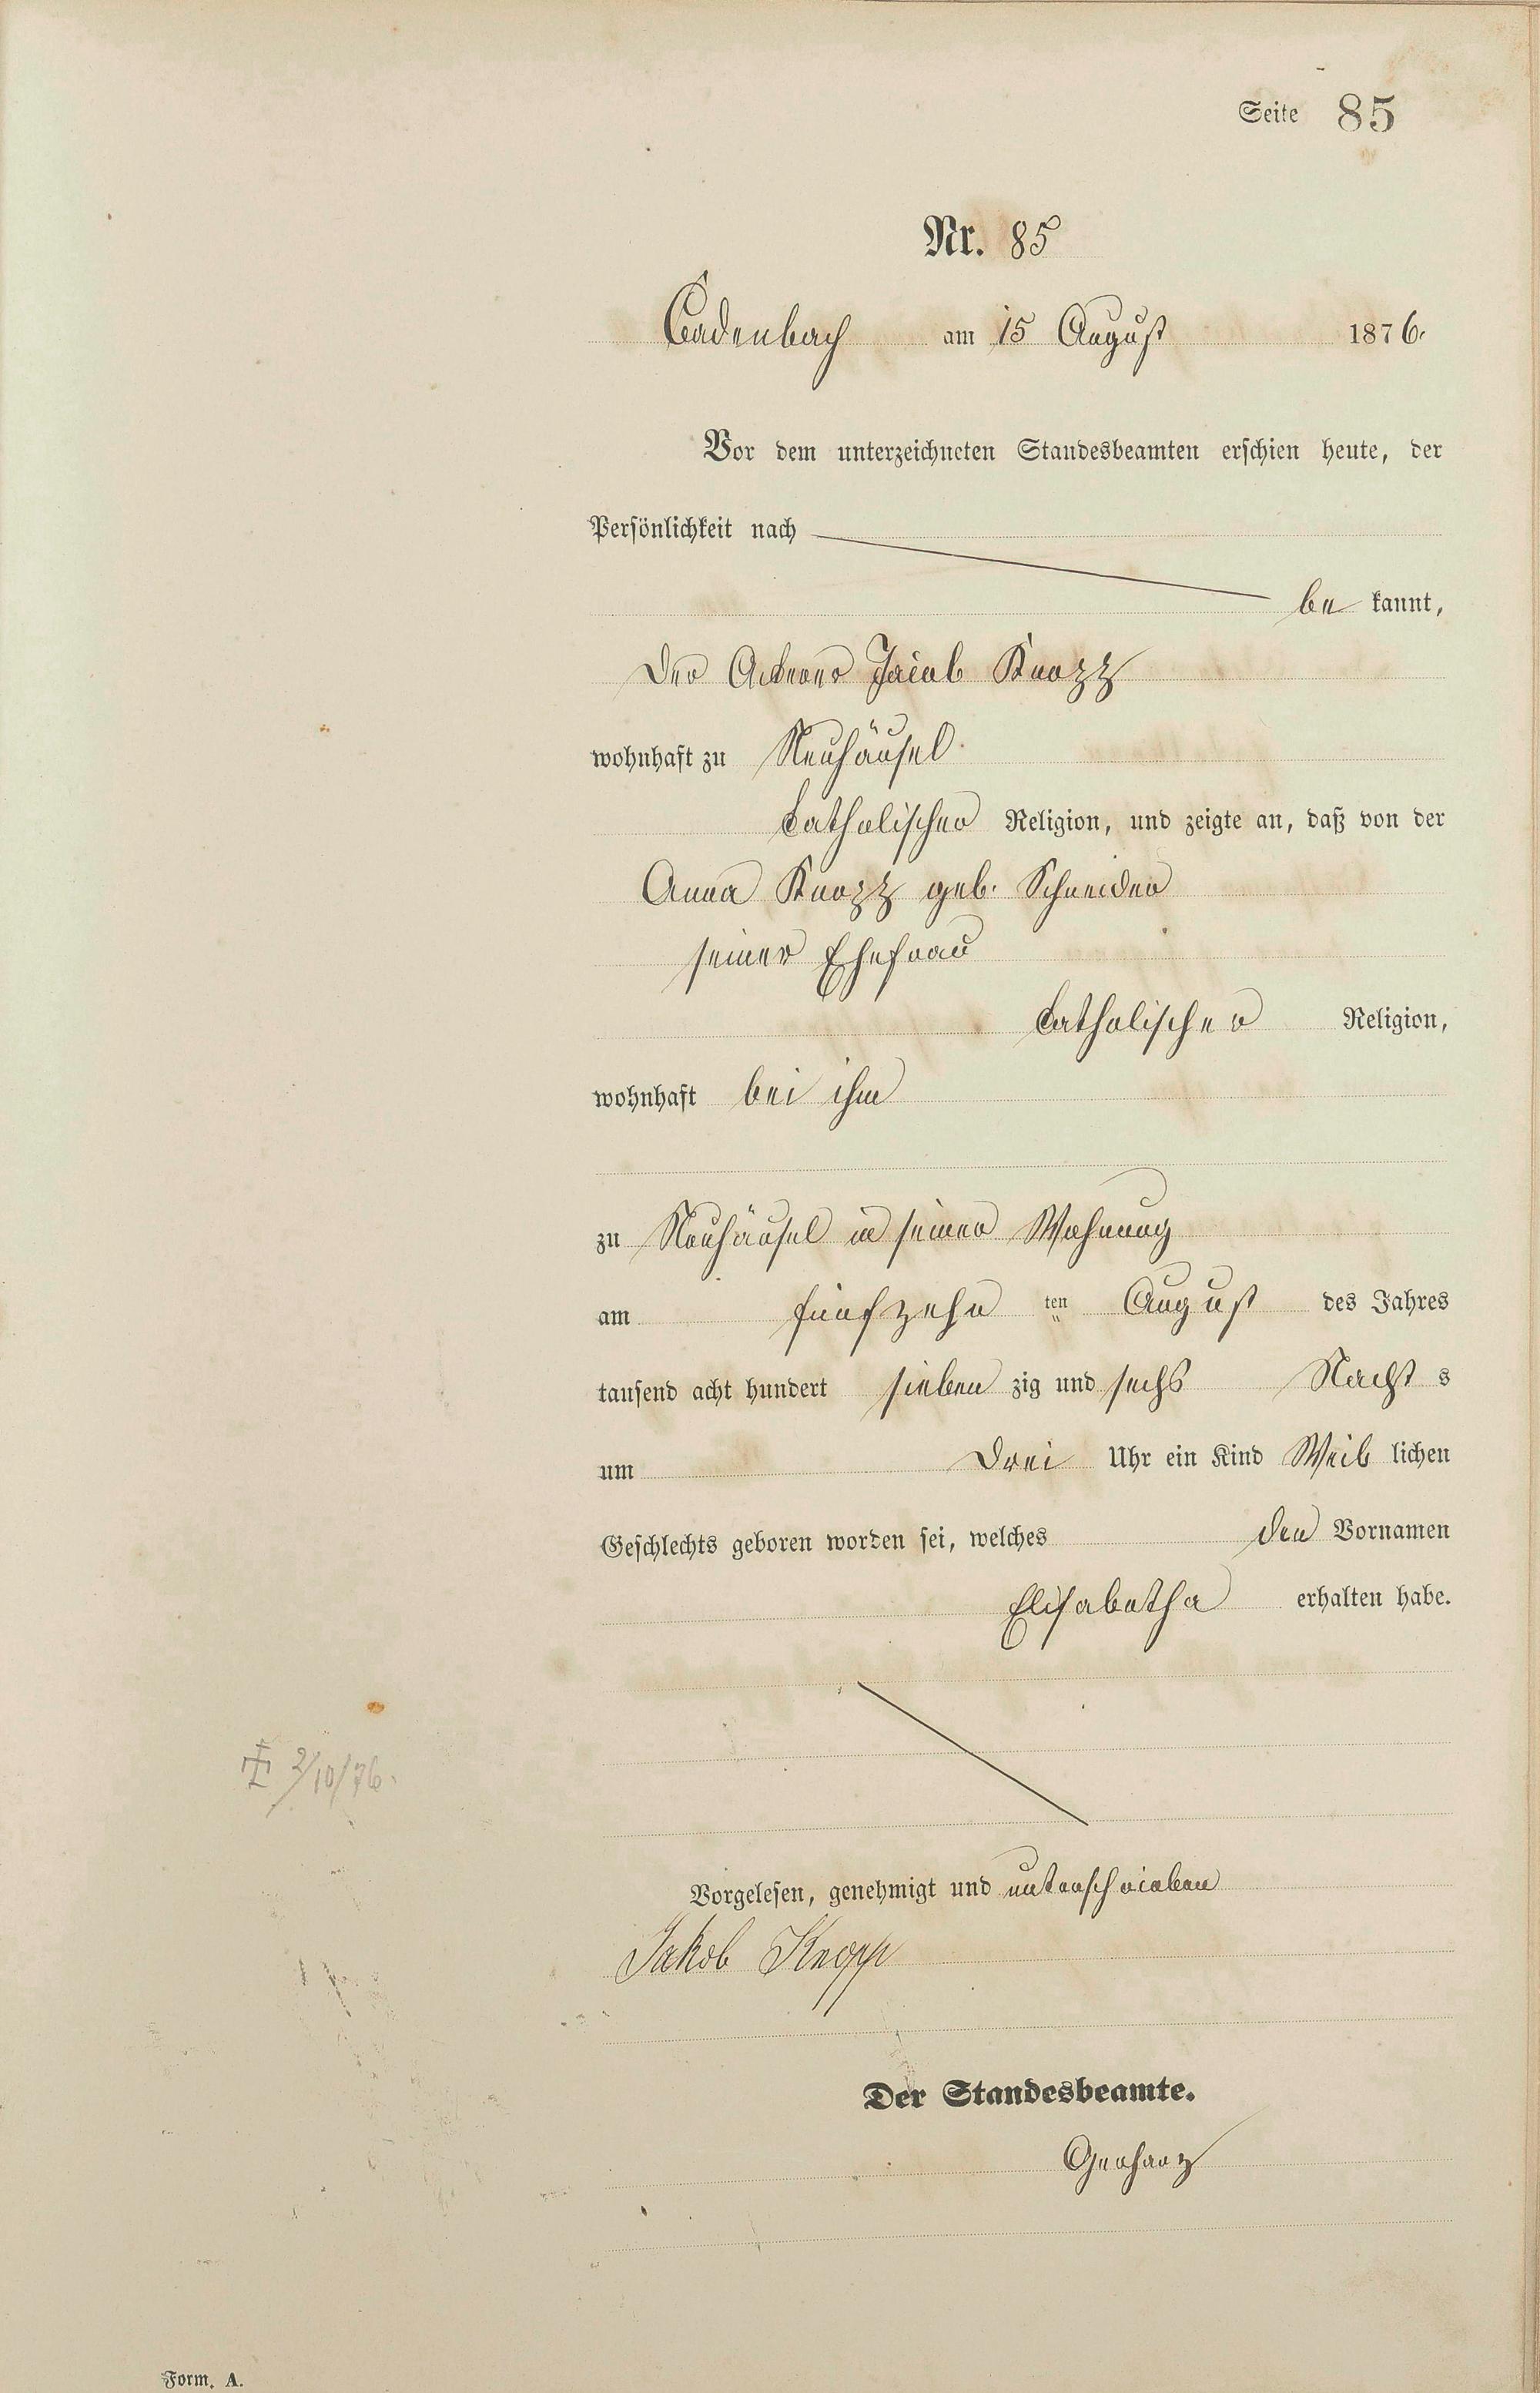 Seite 85
Nr. 85
Cadenbach am 15 August 1876.
Vor dem unterzeichneten Standesbeamten erschien heute, der
Persönlichkeit nach
be kannt,
der Ackerer Jacob Knopp
wohnhaft zu Neuhäusel
katholischer Religion, und zeigte an, daß von der
Anna Knopp geb. Schneider
seiner Ehefrau
katholischer Religion,
wohnhaft bei ihm
zu Neuhäusel in seiner Wohnung
am fünfzehn ten August des Jahres
tausend acht hundert sieben zig und sechs Nacht s
um drei Uhr ein Kind Weib lichen
Geschlechts geboren worden sei, welches den Vornamen
Elisabetha erhalten habe.
2/10/76.
Vorgelesen, genehmigt und unterschrieben
Jakob Knopp
Der Standesbeamte.
Gerharz
Form. A.